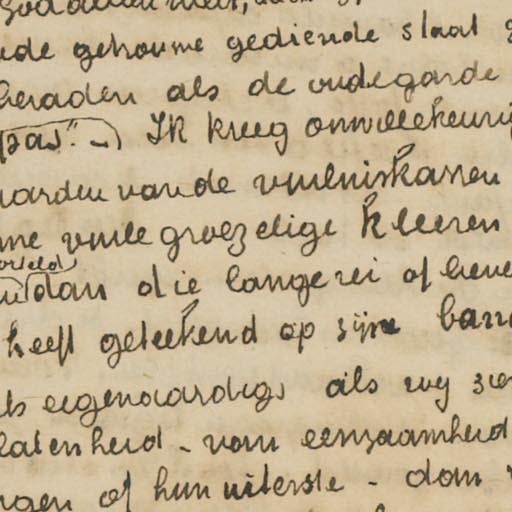 ude getrouwe gediende slaat
beraden als de oudegarde
pas". -) Ik kreeg onwillekeurig
aarden van de vuilniskarren
me vuile groezelige kleeren
dan die lange rei of
heeft geteekend op zijn barr
ets eigenaardigs als wij zie
latenheid - van eenzaamheid
ngen of hun uiterste - dan